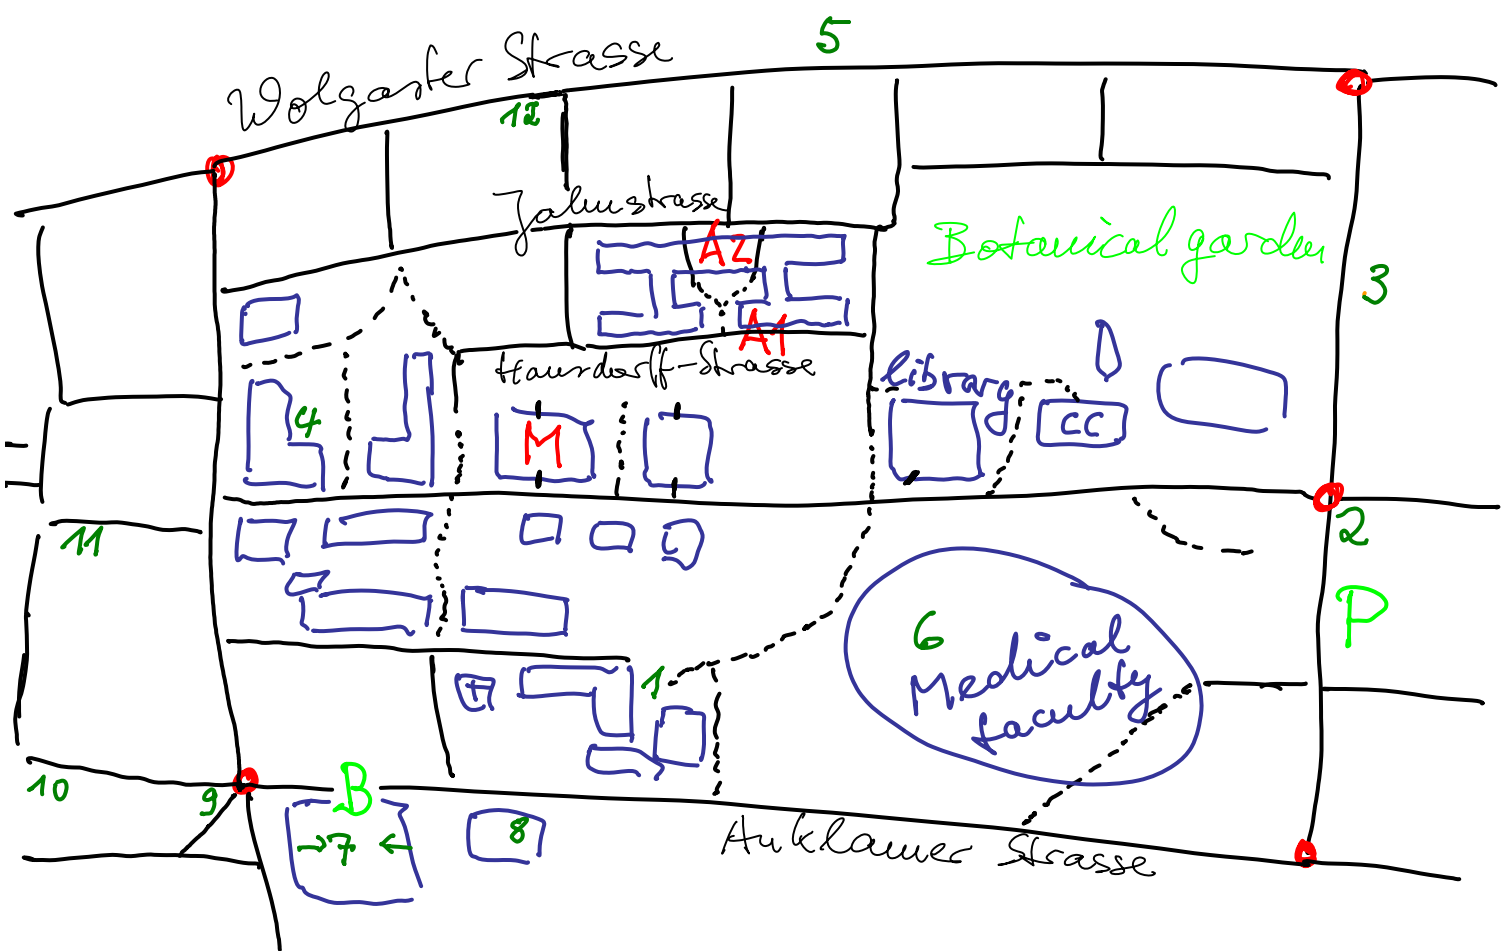 5
Wolgaster Strasse
12
Jahnstrasse
A2
Botanical garden
3
A1
Hausdorff-Strasse
library
4
M
CC
2
11
P
6
Medical
faculty
1
10
9
B
7
8
Anklamer Strasse